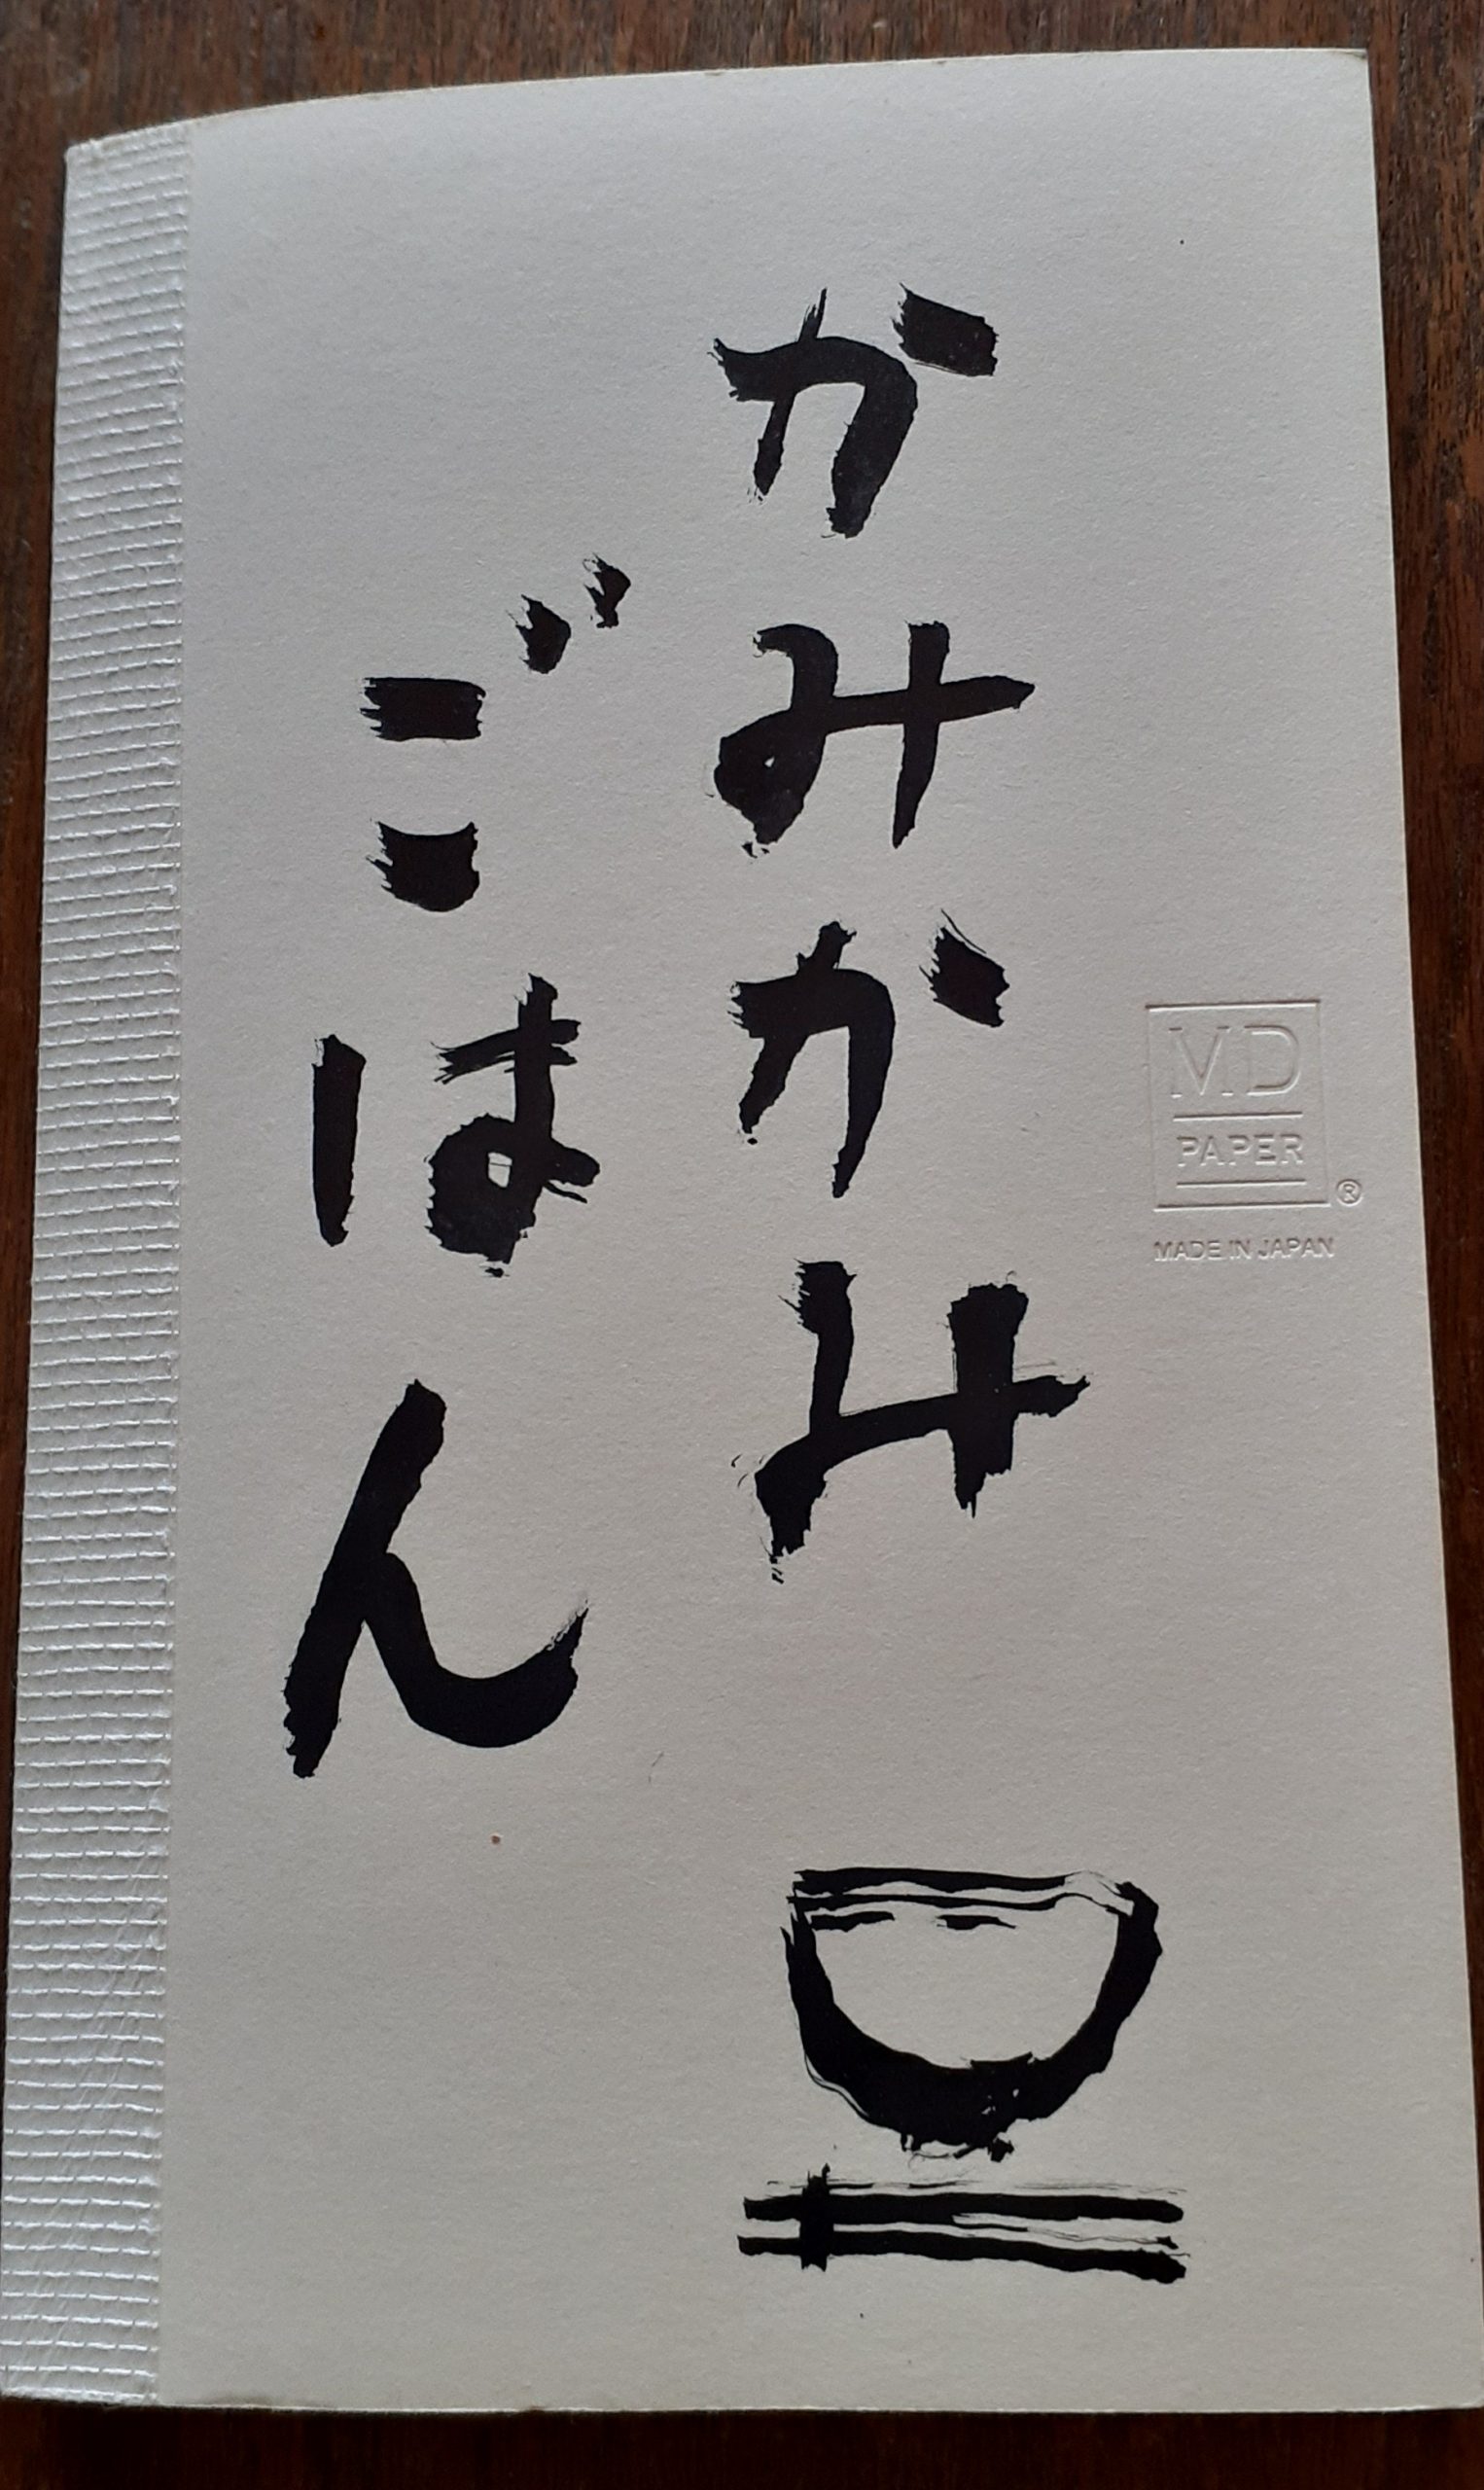 かみかみ
ごはん
MD
PAPER®
MADE IN JAPAN